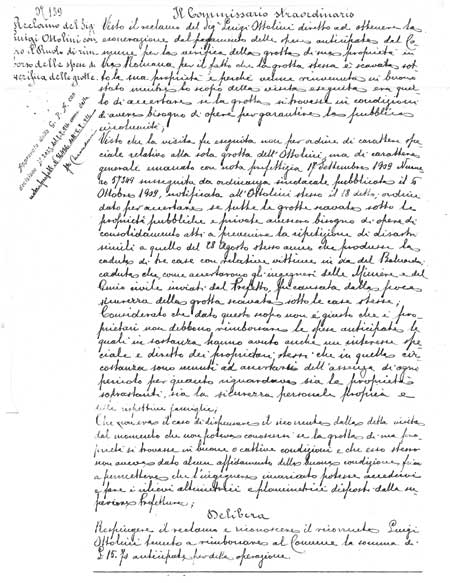 N. 139
Reclamo del Sig
Luigi Ottolini con
tro il Ruolo di rim
borso delle spese di
verifica delle grotte.
Il Commissario straordinario
Visto il reclamo del Sig. Luigi Ottolini diretto ad ottenere la
esonerazione dal pagamento delle spese anticipate dal Co
mune per la verifica della grotta di sua proprietà in
Via Romana, per il fatto che la grotta stessa è scavata sot
to la sua proprietà e perché venne rinvenuta in buono
stato mentre lo scopo della visita eseguita era quel
lo di accertare se la grotta si trovasse in condizioni
di avere bisogno di opere per garantire la pubblica
incolumità;
Visto che la visita fu eseguita non per ordine di carattere spe
ciale relativo alla sola grotta dell'Ottolini, ma di carattere
generale emanato con nota prefettizia 17 Settembre 1909 Nume
ro susseguita da ordinanza sindacale pubblicata il 5
Ottobre 1909, notificata all'Ottolini stesso il 18 detto, ordine
dato per accertare se tutte le grotte scavate sotto le
proprietà pubbliche e private avessero bisogno di opere di
consolidamento atti a prevenire la ripetizione di disastri
simili a quello del 28 Agosto stesso anno che produsse la
caduta di tre case con relative vittime in via del
caduta che come accertarono gli ingegneri delle Miniere e del
Genio civile inviati dal Prefetto, fu causata dalla poca
sicurezza della grotta scavata sotto le case stesse;
Considerato che dato questo scopo non è giusto che i pro-
prietari non debbano rimborsare le spese anticipate le
quali in sostanza hanno avuto anche un interesse spe
ciale e diretto dei proprietari stessi che in quella cir-
costanza sono venuti ad accertarsi dell'assenza di ogni
pericolo per quanto riguardava sia la proprietà
soprastanti, sia la sicurezza personale propria e
delle rispettive famiglie;
Che non era il caso di dispensare il ricorrente dalla detta visita
dal momento che non poteva conoscersi se la grotta di sua pro
prietà si trovasse in buone o cattive condizioni e che esso stesso
non aveva dato alcun affidamento della buona condizione, fino
a permettere che l'ingegnere incaricato potesse accedervi
e fare i rilievi altimetrici e planimetrici disposti dalla su
periore Prefettura;
Delibera
Respingere il reclamo e riconoscere il ricorrente Luigi
Ottolini tenuto a rimborsare al Comune la somma di
£ 15.75 anticipate per detta operazione.